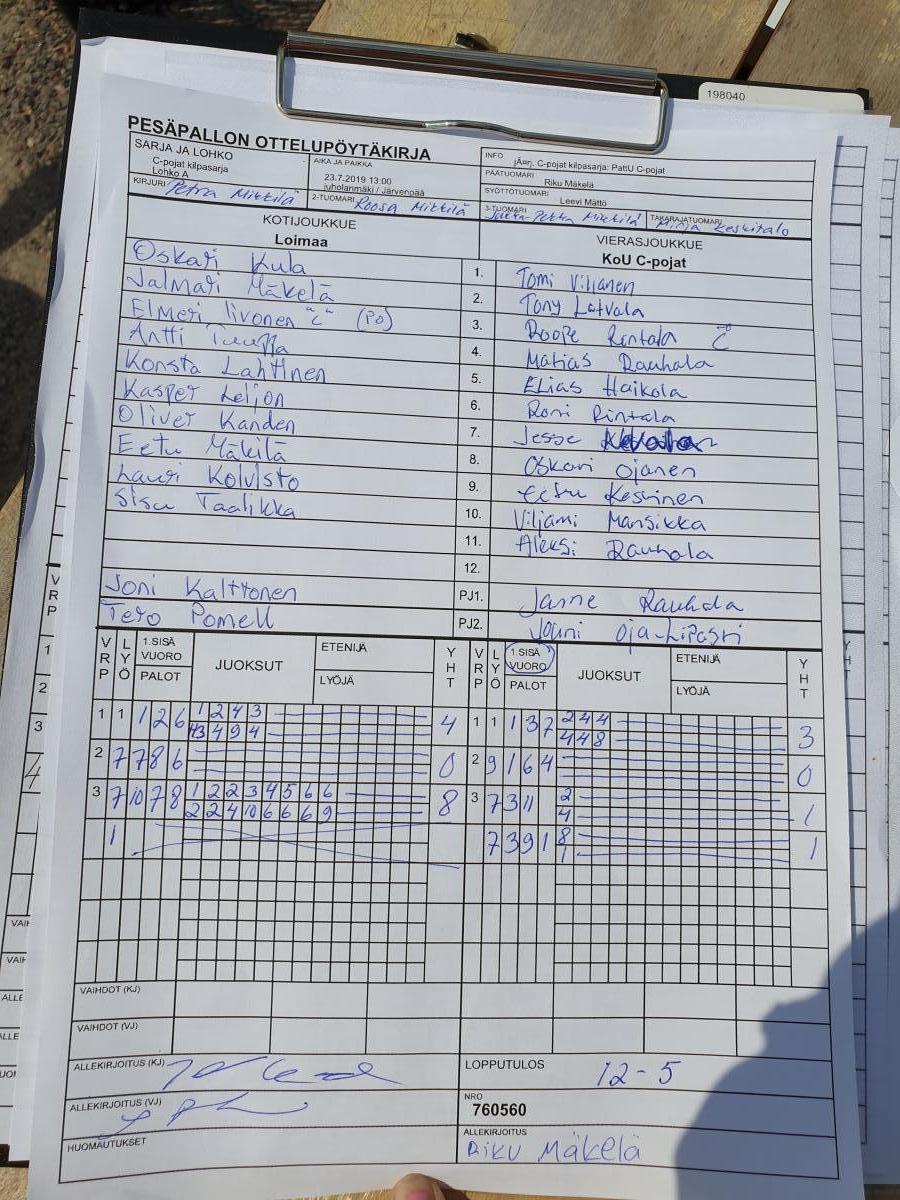 198040
PESÄPALLON OTTELUPÖYTÄKIRJA
SARJA JA LOHKO
C-pojat kilpasarja
Lohko A
AIKA JA PAIKKA
23.7.2019 13:00
juholanmäki / Järvenpää
INFO
C-pojat kilpasarja: PattU C-pojat
PÄÄTUOMARI
Riku Mäkelä
SYÖTTÖTUOMARI
Leevi Mättö
KIRJURI Petra Mikkilä
2-TUOMARI Roosa Mikkilä
3-TUOMARI Jukka-Pekka Mikkilä
TAKARAJATUOMARI Minja Keskitalo
KOTIJOUKKUE
Loimaa
VIERASJOUKKUE
KoU C-pojat
Oskari Kula 1. Tomi Viljanen
Jalmari Mäkelä 2. Tony Latvala
Elmeri Iivonen "C" (PO) 3. Roope Rintala C
Antti 4. Matias Rauhala
Konsta Lahtinen 5. Elias Haikola
Kasper Leijon 6. Roni Rintala
Oliver Kanden 7. Jesse
Eetu Mäkilä 8. Oskari Ojanen
Lauri Koivisto 9. Eetu Keskinen
Sisu Taalikka 10. Viljami Mansikka
11. Aleksi Rauhala
12.
Joni Kalttonen PJ1. Janne Rauhala
Tero Pomell PJ2. Jouni Oja-Lipasti
VRP LYÖ 1.SISÄ VUORO PALOT JUOKSUT ETENIJÄ LYÖJÄ YHT VRP LYÖ 1.SISÄ VUORO PALOT JUOKSUT ETENIJÄ LYÖJÄ YHT
1 1 1 2 6 1 2 4 3 4 1 1 1 3 7 2 4 4 3
3 4 9 4 4 4 8
2 7 7 8 6 0 2 9 1 6 4 0
3 7 10 7 8 1 2 2 3 4 5 6 6 8 3 7 3 11 2 1
2 2 4 10 6 6 6 9 4
1 7 3 9 1 8 1
1
VAIHDOT (KJ)
VAIHDOT (VJ)
ALLEKIRJOITUS (KJ)
LOPPUTULOS 12-5
ALLEKIRJOITUS (VJ)
NRO
760560
HUOMAUTUKSET
ALLEKIRJOITUS
Riku Mäkelä